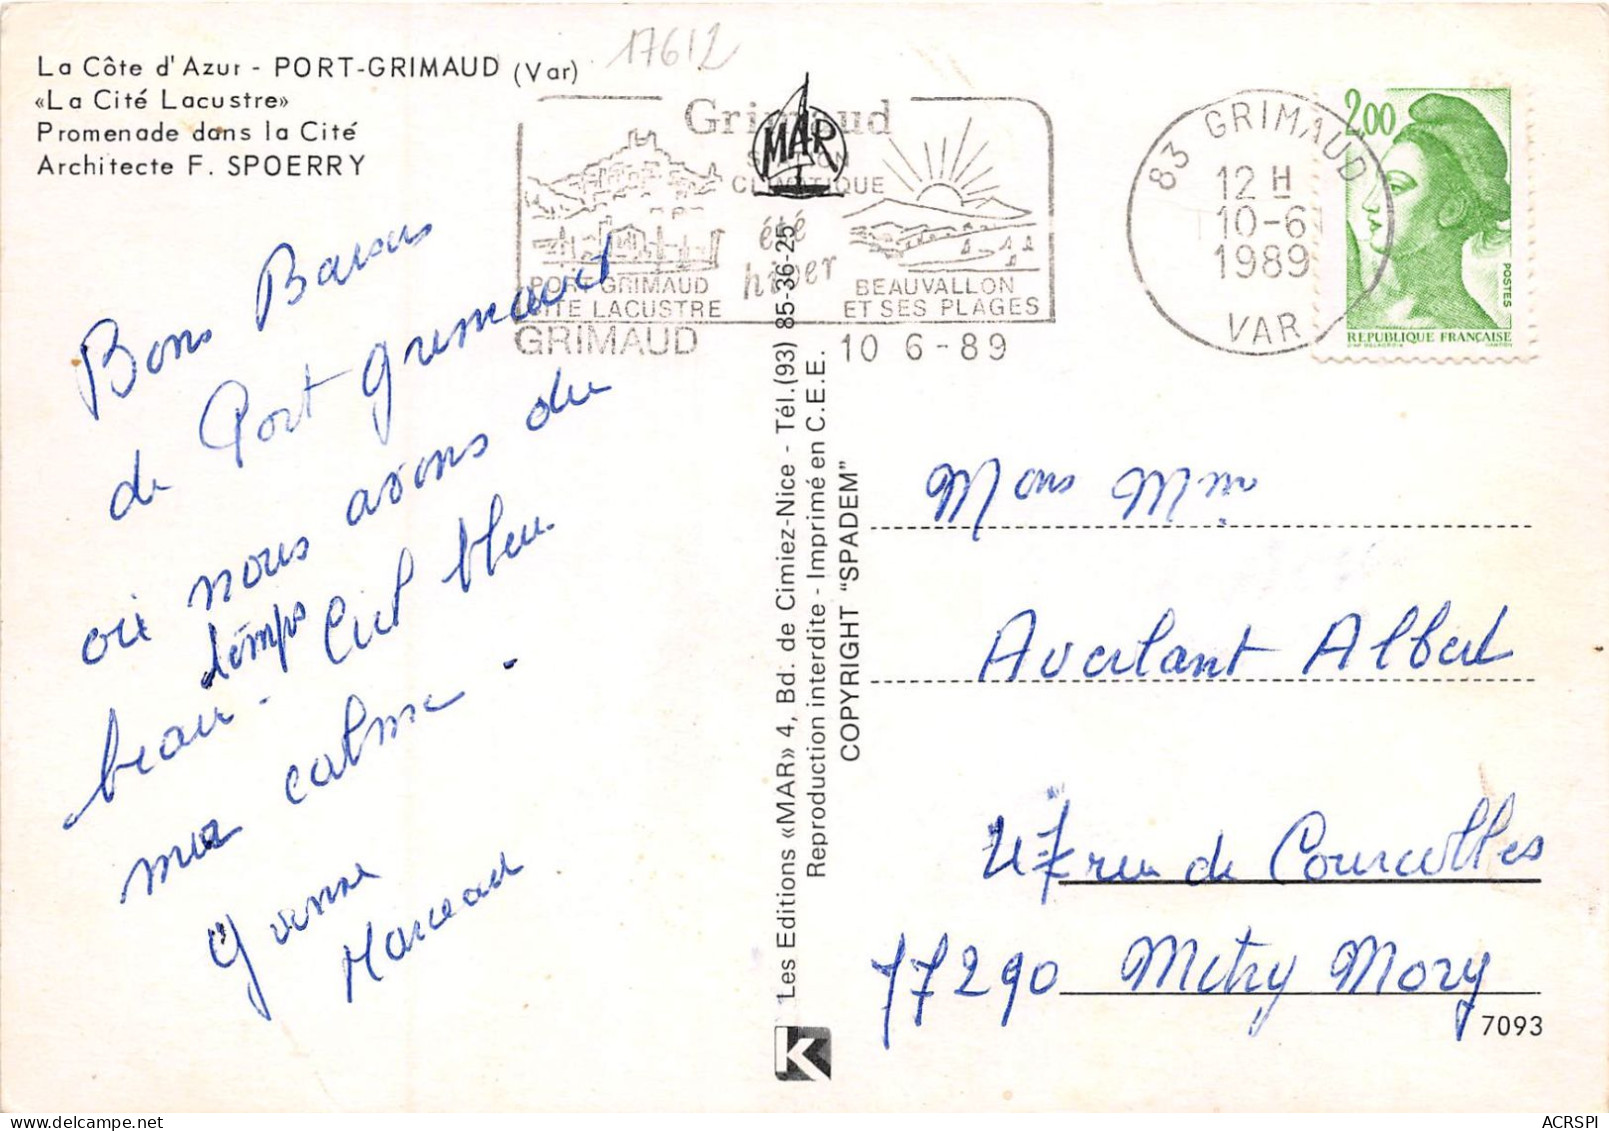 17612
La Côte d'Azur - PORT-GRIMAUD (Var)
«La Cité Lacustre»
Promenade dans la Cité
Architecte F. SPOERRY
Grimaud
STATION
CLIMATIQUE
été
hiver
MAR
PORT GRIMAUD
CITÉ LACUSTRE
BEAUVALLON
ET SES PLAGES
GRIMAUD
10 6-89
83 GRIMAUD
12 H
10-6
1989
VAR
2,00
POSTES
REPUBLIQUE FRANÇAISE
Bons Baisers
de Port Grimaud
où nous avons du
temps
beau - Ciel bleu
mer calme -
Yvonne
Marceau
Les Editions «MAR» 4, Bd. de Cimiez-Nice - Tél.(93) 85-36-25
Reproduction interdite - Imprimé en C.E.E.
COPYRIGHT "SPADEM"
K
Mons Mme
Averlant Albert
47 rue de Courcelles
77290 Mitry Mory
7093
ACRSPI